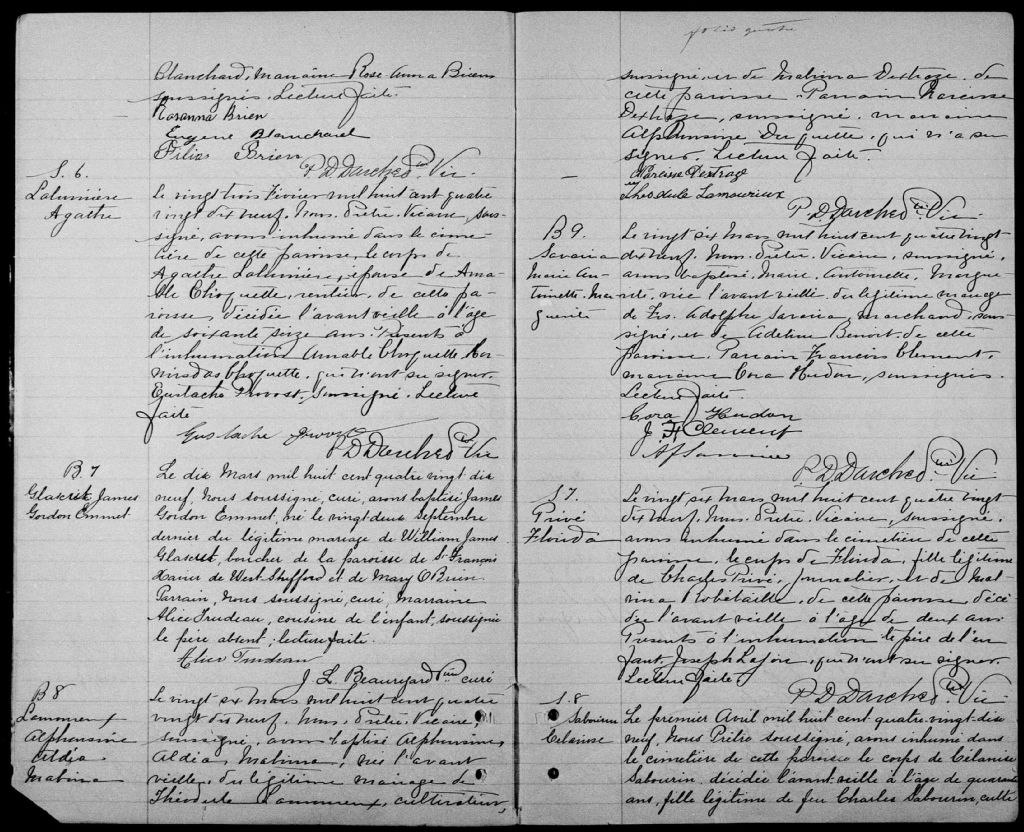 Blanchard, marraine Rose-Anna Brien
soussignés. Lecture faite.
Rosanna Brien
Eugène Blanchard
Filias Brien
P. D. Darches Ptre Vic.
S. 6.
Lalumière
Agathe
Le vingt trois Février mil huit cent quatre
vingt dix neuf. Nous. Prêtre. Vicaire, sous-
signé, avons inhumé dans le cime-
tière de cette paroisse, le corps de
Agathe Lalumière, épouse de Ama-
ble Choquette, rentier, de cette pa-
roisse, décédée l'avant veille à l'âge
de soixante seize ans. Présents à
l'inhumation Amable Choquette, Hor-
misdas Choquette, qui n'ont su signer.
Eustache Provost, soussigné. Lecture
faite
Eustache Provost
P. D. Darches Ptre Vic
B. 7
James
Gordon Emmet.
Le dix Mars mil huit cent quatre vingt dix
neuf, Nous soussigné, curé, avons baptisé James
Gordon Emmet, né le vingt deux Septembre
dernier du légitime mariage de William James
boucher de la paroisse de St François
Xavier de West Shefford et de Mary O'Brien.
Parrain, Nous soussigné, curé, marraine
Alice Trudeau, cousine de l'enfant, soussignée
le père absent; lecture faite.
Alice Trudeau
J. L. Beauregard Ptre curé
B 8
Lamoureux
Alphonsine
Aldéa
Malvina
Le vingt six Mars mil huit cent quatre
vingt dix neuf. Nous. Prêtre. Vicaire,
soussigné, avons baptisé Alphonsine,
Aldéa, Malvina, née l'avant
veille, du légitime mariage de
Théodule Lamoureux, cultivateur,
folio quatre
soussigné, et de Malvina Destroge. de
cette paroisse. Parrain Narcisse
Destroge, soussigné. marraine
Alphonsine Duquette, qui n'a su
signer. Lecture faite.
Narcisse
Theodule Lamoureux
P. D. Darches Ptre Vic
B 9.
Savaria
Marie An-
toinette. Mar-
guerite
Le vingt six Mars mil huit cent quatre vingt-
dix neuf. Nous. Prêtre. Vicaire, soussigné,
avons baptisé, Marie, Antoinette, Margue-
rite, née l'avant veille, du légitime mariage
de Frs. Adolphe Savaria, marchand, sous-
signé, et de Adeline Benoit, de cette
paroisse. Parrain Francis Clement,
marraine Cora Hudon, soussignés.
Lecture faite.
Cora Hudon
J. H Clement
P. D. Darches Ptre Vic
S 7.
Privé
Florida
Le vingt six Mars mil huit cent quatre vingt
dix neuf. Nous. Prêtre. Vicaire, soussigné,
avons inhumé dans le cimetière de cette
paroisse, le corps de Florida, fille légitime
de Charles Privé, journalier, et de Mal-
vina Robetaille, de cette paroisse, décé-
dée l'avant veille à l'âge de deux ans
Présents à l'inhumation le père de l'en
fant, Joseph qui n'ont su signer.
Lecture faite
P. D. Darches Ptre Vic
S. 8
Sabourin
Célanise
Le premier Avril mil huit cent quatre-vingt-dix
neuf, Nous Prêtre soussigné, avons inhumé dans
le cimetière de cette paroisse le corps de Célanise
Sabourin, décédée l'avant-veille à l'âge de quarante
ans, fille légitime de feu Charles Sabourin, culti